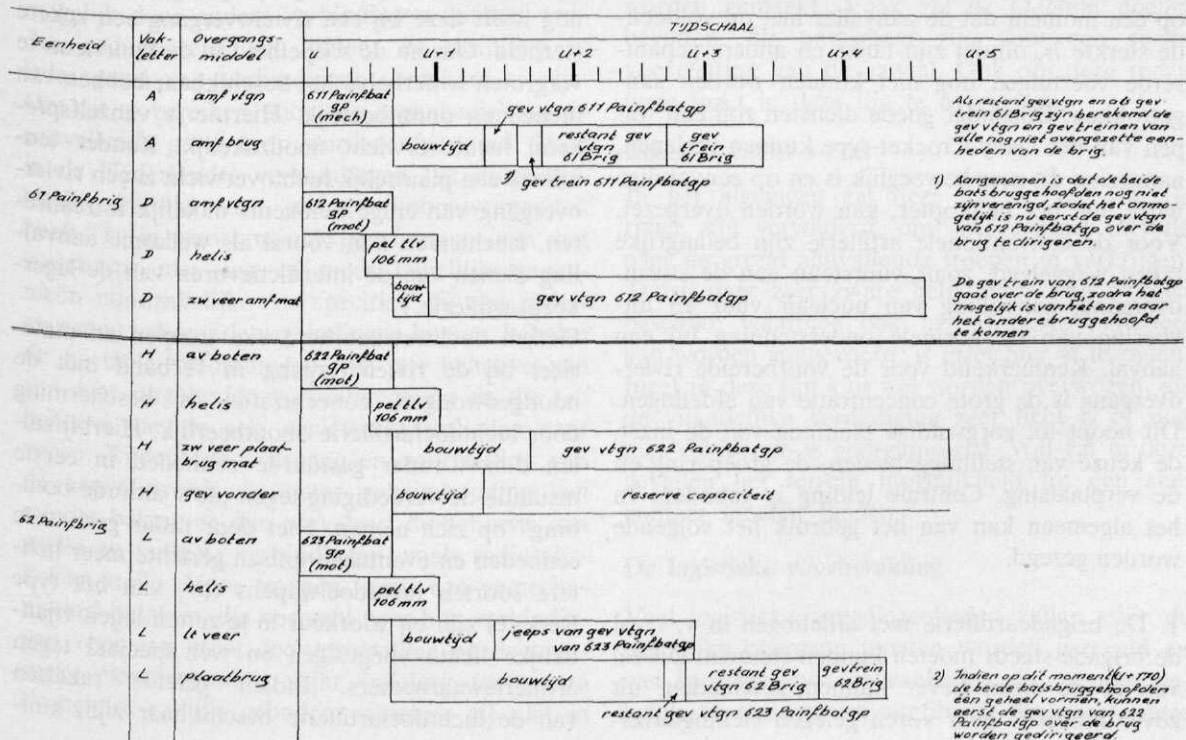 TIJDSCHAAL
Eenheid
Vak-
letter
Overgangs-
middel
u
u+1
u+2
u+3
u+4
u+5
A
amf vtgn
611 Painfbat
gp
(mech)
gev vtgn 611 Painfbatgp
A
amf brug
bouwtijd
restant gev
vtgn
61 Brig
gev
trein
61 Brig
2) gev trein 611 Painfbatgp
61 Painfbrig
D
amf vtgn
612 Painfbat
gp
(mot)
D
helis
pel tlv
106 mm
D
zw veer amf mat
bouw
tijd
gev vtgn 612 Painfbatgp
H
av boten
622 Painfbat
gp
(mot)
H
helis
pel tlv
106 mm
H
zw veer plaat-
brug mat
bouwtijd
gev vtgn 622 Painfbatgp
H
gev vonder
bouwtijd
reserve capaciteit
62 Painfbrig
L
av boten
623 Painfbat
gp
(mot)
L
helis
pel tlv
106 mm
L
lt veer
bouwtijd
jeeps van gev vtgn
van 623 Painfbatgp
L
plaatbrug
bouwtijd
restant gev
vtgn 62 Brig
gev trein
62 Brig
restant gev vtgn 623 Painfbatgp
Als restant gev vtgn en als gev
trein 61 Brig zijn berekend de
gev vtgn en gev treinen van
alle nog niet overgezette een
heden van de brig.
1) Aangenomen is dat de beide
batsbruggehoofden nog niet
zijn verenigd, zodat het onmo-
gelijk is n u eerst de gev vtgn
van 612 Painfbatgp over de
brug te dirigeren.
De gev trein van 612 Painfbatgp
gaat over de brug, zodra het
mogelijk is van het ene naar
het andere bruggehoofd
te komen
2) Indien op dit moment (u+170)
de beide batsbruggehoofden
een geheel vormen, kunnen
eerst de gev vtgn van 622
Painfbatgp over de brug
worden gedirigeerd.